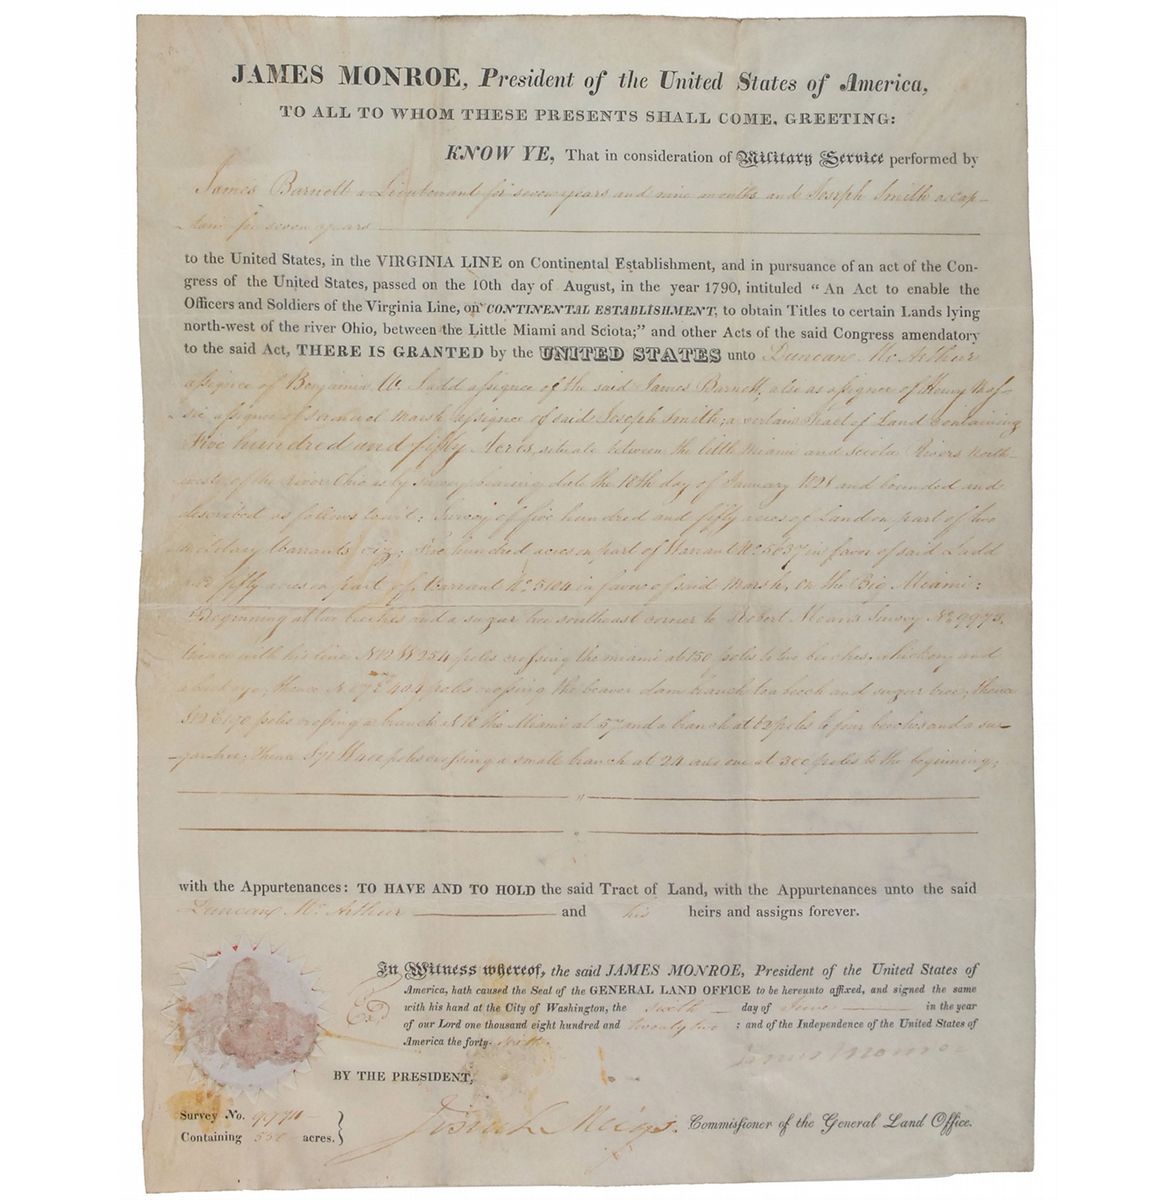 JAMES MONROE, President of the United States of America,
TO ALL TO WHOM THESE PRESENTS SHALL COME, GREETING:
KNOW YE, That in consideration of Military Service performed by
James Barnett a Lieutenant for seven years and nine months and Joseph Smith a cap-
tain for seven years
to the United States, in the VIRGINIA LINE on Continental Establishment, and in pursuance of an act of the Con-
gress of the United States, passed on the 10th day of August, in the year 1790, intituled “An Act to enable the
Officers and Soldiers of the Virginia Line, on CONTINENTAL ESTABLISHMENT, to obtain Titles to certain Lands lying
north-west of the river Ohio, between the Little Miami and Sciota;” and other Acts of the said Congress amendatory
to the said Act, THERE IS GRANTED by the UNITED STATES unto Duncan McArthur
assignee of Benjamin W. Ladd assignee of the said James Barnett, also as assignee of Henry Mas-
sie assignee of Samuel Marsh assignee of said Joseph Smith; a certain Tract of Land containing
Five hundred and fifty Acres, situate between the little Miami and Sciota Rivers North-
west of the River Ohio as by survey bearing date the 18th day of January 1821 and bounded and
described as follows to wit: Survey of five hundred and fifty acres of Land on part of two
military Warrants viz: Five hundred acres on part of Warrant No. 5037 in favor of said Ladd
and fifty acres on part of Warrant No. 5184 in favor of said Marsh, on the Big Miami:
Beginning at two beeches and a sugar tree southeast corner to Robert Means Survey No. 9973,
thence with his line N12 W 254 poles crossing the miami at 150 poles to two beeches, a hickory and
a buckeye; thence N 67 E 404 poles crossing the beaver dam branch to a beech and sugar tree; thence
poles crossing a branch the Miami at 57 and a branch at 62 poles to four beeches and a su-
gar tree; thence S 71 W 400 poles crossing a small branch at 24 and one at 300 poles to the beginning;
with the Appurtenances: TO HAVE AND TO HOLD the said Tract of Land, with the Appurtenances unto the said
Duncan McArthur and his heirs and assigns forever.
In Witness whereof, the said JAMES MONROE, President of the United States of
America, hath caused the Seal of the GENERAL LAND OFFICE to be hereunto affixed, and signed the same
with his hand at the City of Washington, the sixth day of June in the year
of our Lord one thousand eight hundred and twenty two : and of the Independence of the United States of
America the forty-
James Monroe
BY THE PRESIDENT,
Survey No. 9974
Josiah Meigs. Commissioner of the General Land Office.
Containing 550 acres.